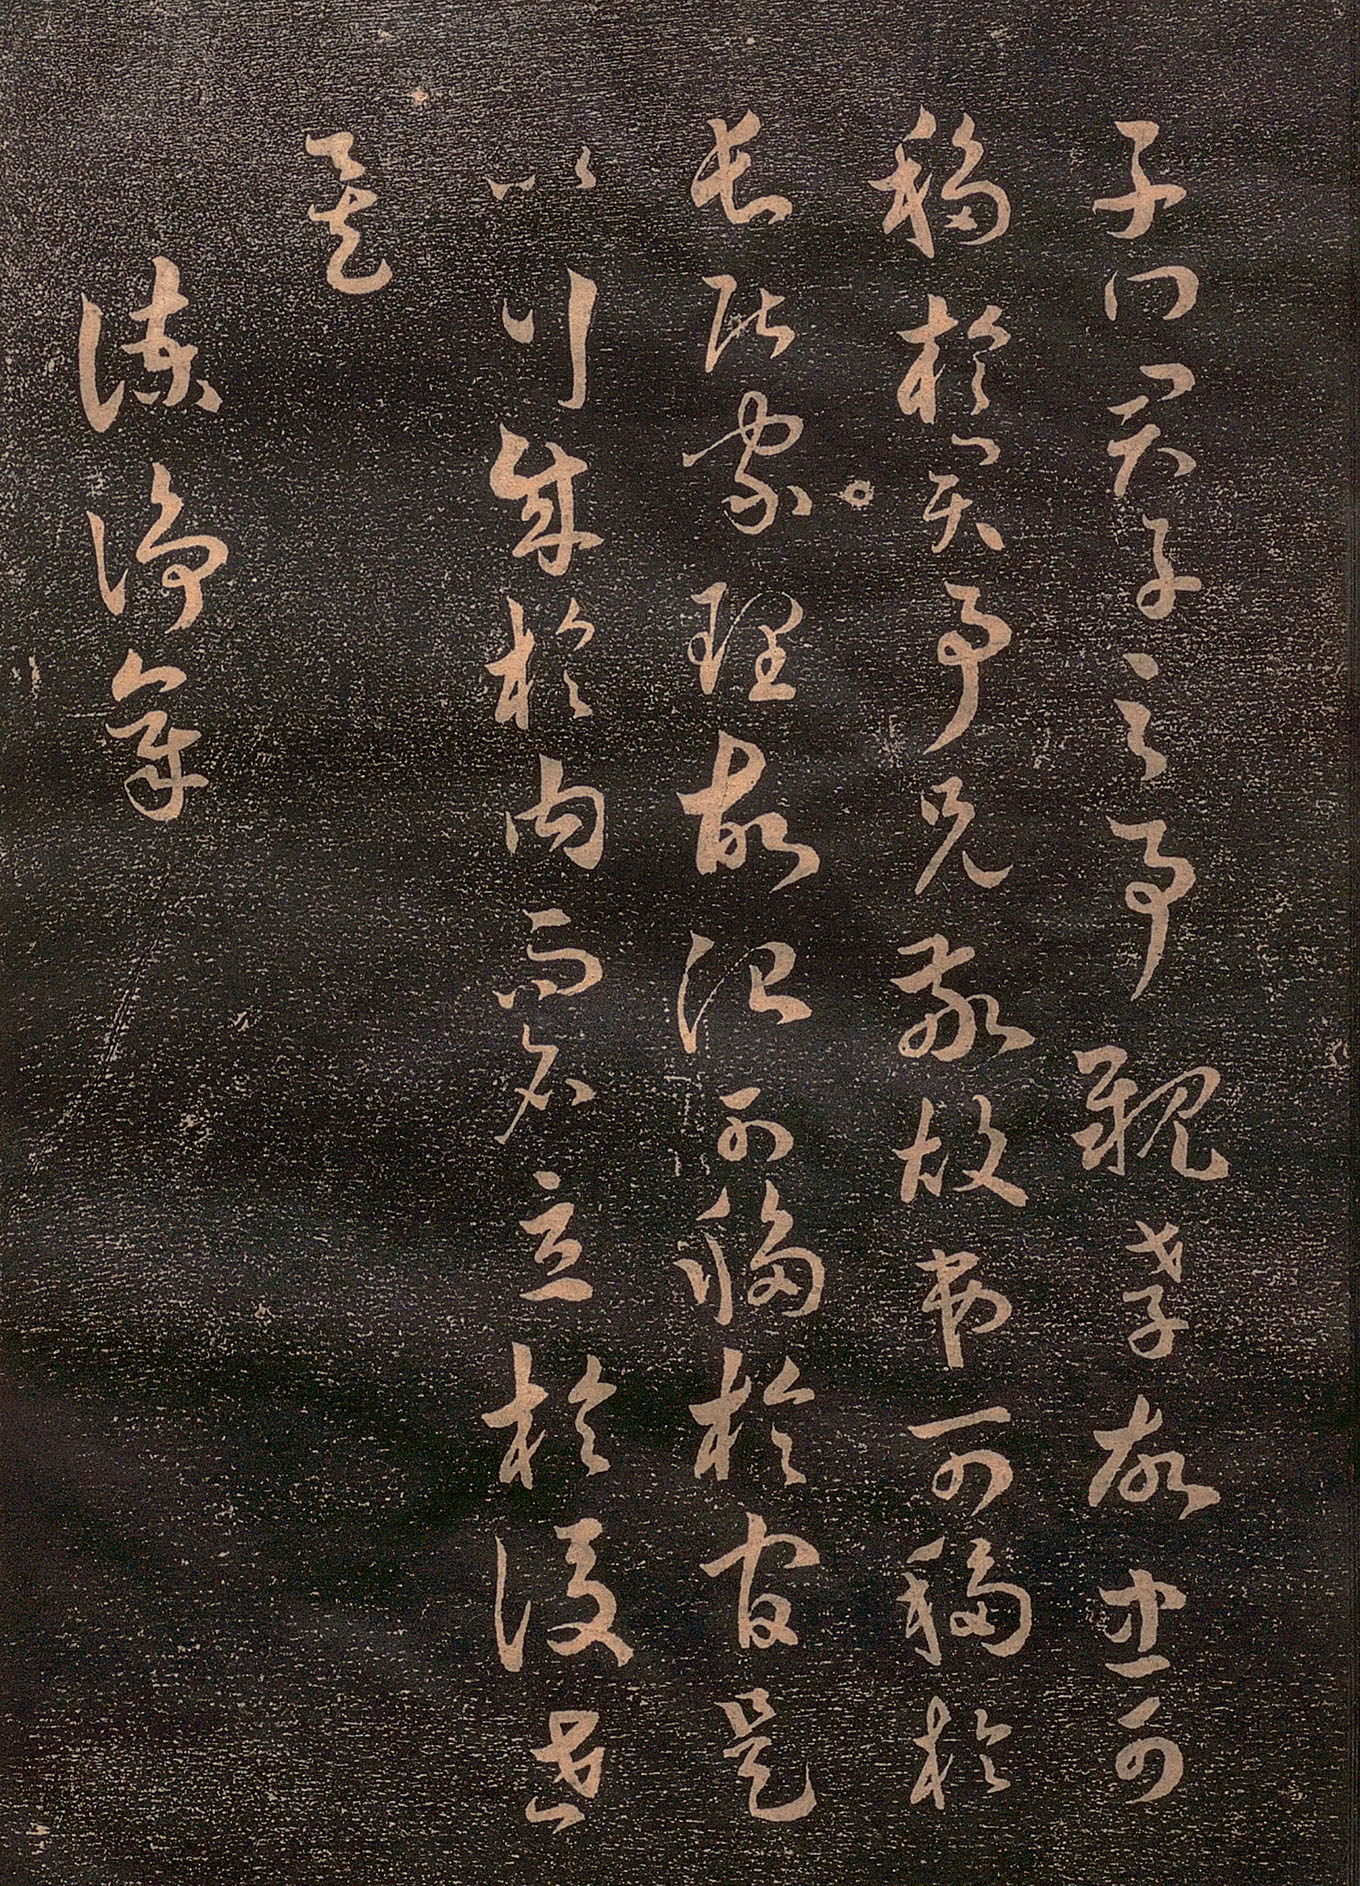 子曰君子之事親孝故忠可
移於君事兄故可移於
長居家理故治可移於官是
以行成於内而名立於後世
矣
諫諍章